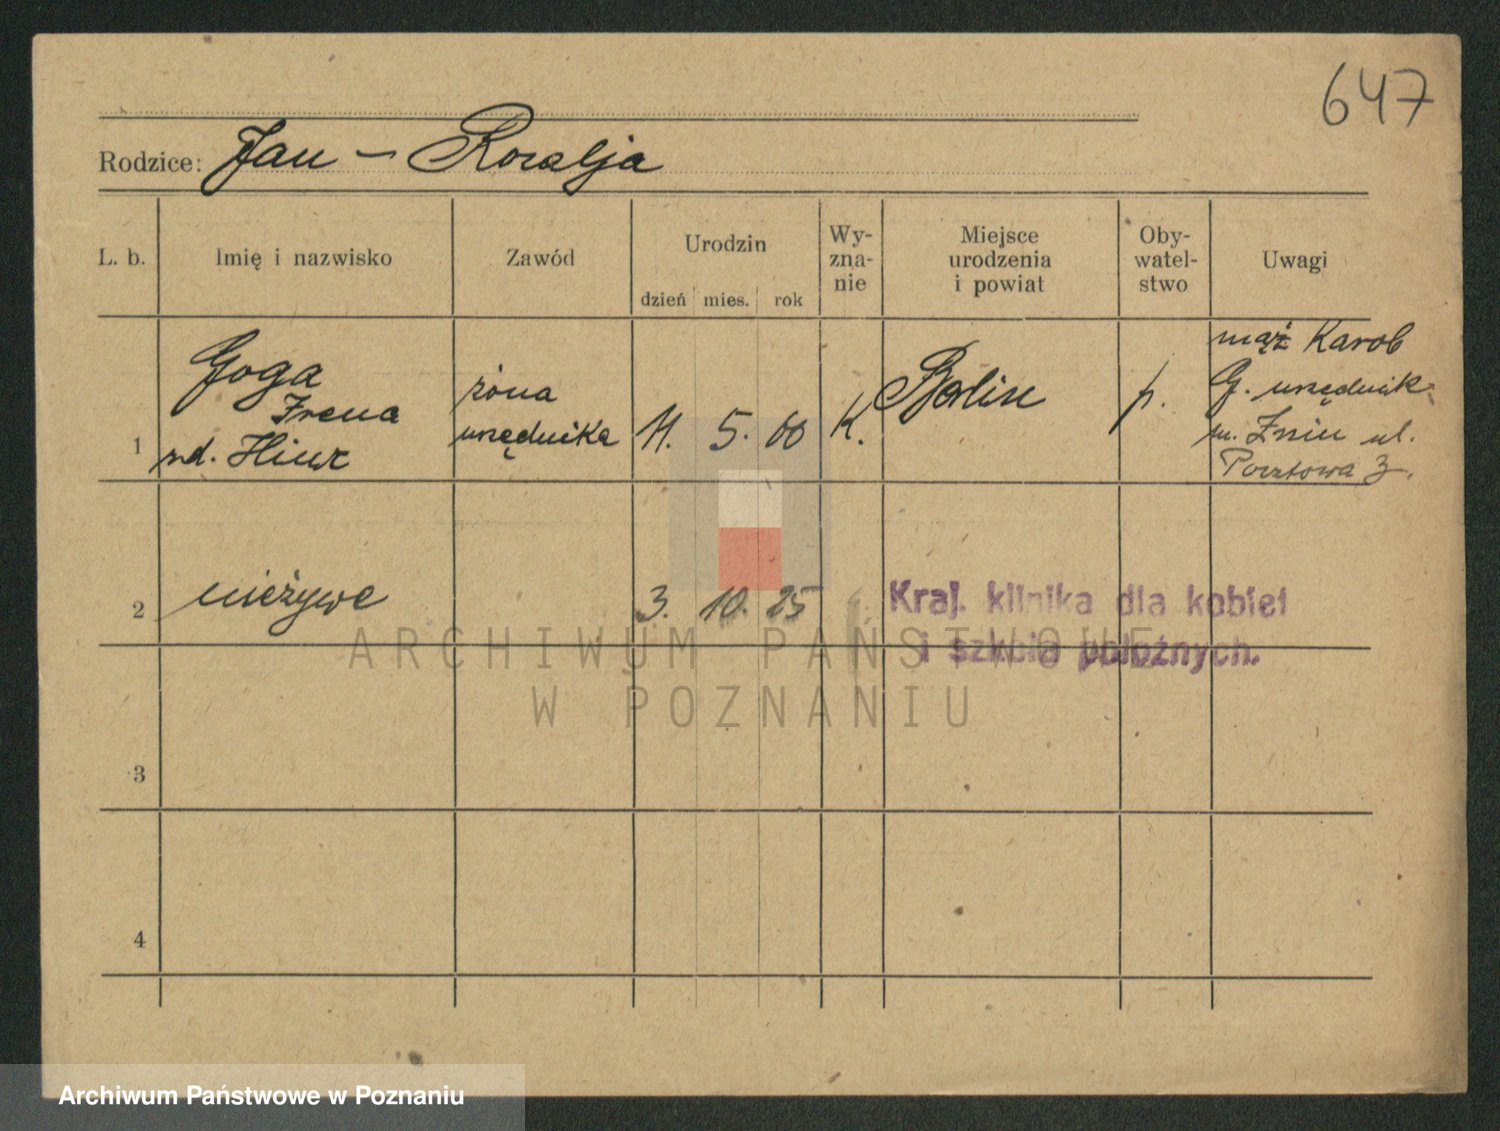 647
Rodzice: Jan – Rozalja
L. b.
Imię i nazwisko
Zawód
Urodzin
dzień mies. rok
Wy-
zna-
nie
Miejsce
urodzenia
i powiat
Oby-
watel-
stwo
Uwagi
1
Goga
Irena
zd. Hinz
żona
urzędnika
11. 5. 00
K.
Berlin
p.
mąż Karol
G. urzędnik
m. Żnin ul.
Pocztowa 3.
2
nieżywe
3. 10. 25
Kraj. klinika dla kobiet
i szkoła położnych.
3
4
ARCHIWUM PAŃSTWOWE
W POZNANIU
Archiwum Państwowe w Poznaniu